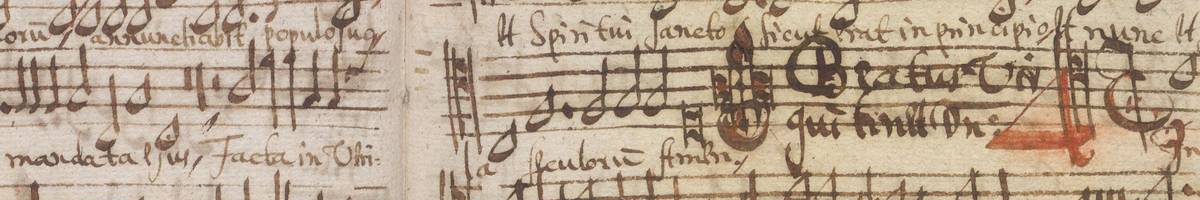 orū annunciabit populo suo
mandata eius, Facta in Veri:
Et Spiritui Sancto sicut erat in principio et nunc et
Beatus Vir
qui timet Dn̄:
la seculorū Amen,